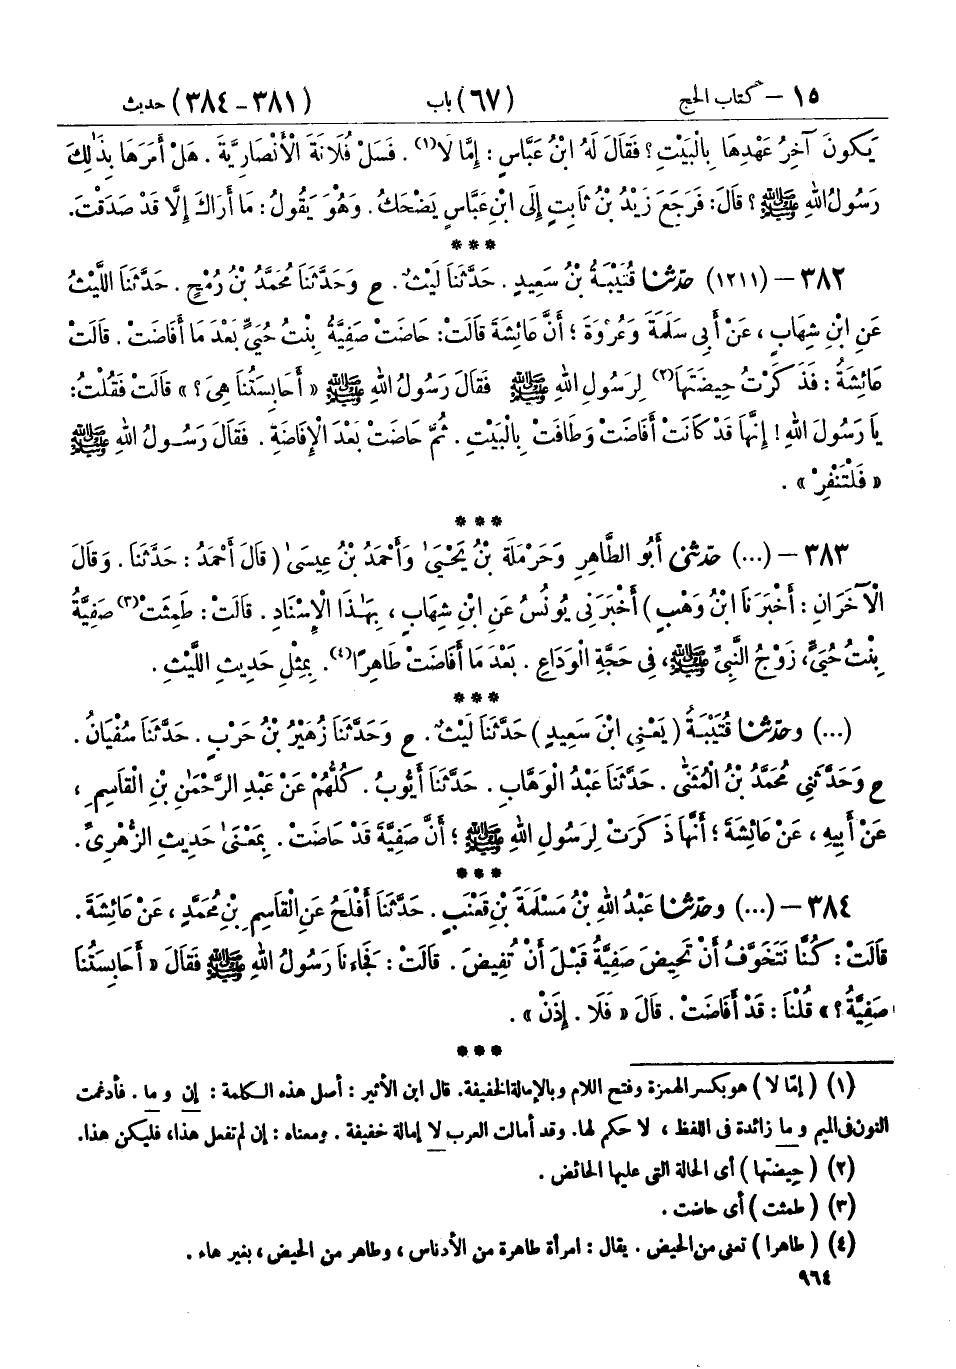 ١٥ – كتاب الحج (٦٧) باب (٣٨١ – ٣٨٤) حديث
يَكُونَ آخِرُ عَهْدِهَا بِالْبَيْتِ؟ فَقَالَ لَهُ ابْنُ عَبَّاسٍ: إِمَّا لَا(١). فَسَلْ فُلَانَةَ الْأَنْصَارِيَّةَ. هَلْ أَمَرَهَا بِذَٰلِكَ
رَسُولُ اللهِ ﷺ؟ قَالَ: فَرَجَعَ زَيْدُ بْنُ ثَابِتٍ إِلَى ابْنِ عَبَّاسٍ يَضْحَكُ. وَهُوَ يَقُولُ: مَا أَرَاكَ إِلَّا قَدْ صَدَقْتَ.
***
٣٨٢ – (١٢١١) حَدَّثَنَا قُتَيْبَةُ بْنُ سَعِيدٍ. حَدَّثَنَا لَيْثٌ. ح وَحَدَّثَنَا مُحَمَّدُ بْنُ رُمْحٍ. حَدَّثَنَا اللَّيْثُ
عَنِ ابْنِ شِهَابٍ، عَنْ أَبِي سَلَمَةَ وَعُرْوَةَ؛ أَنَّ عَائِشَةَ قَالَتْ: حَاضَتْ صَفِيَّةُ بِنْتُ حُيَيٍّ بَعْدَ مَا أَفَاضَتْ. قَالَتْ
عَائِشَةُ: فَذَكَرْتُ حِيضَتَهَا(٢) لِرَسُولِ اللهِ ﷺ فَقَالَ رَسُولُ اللهِ ﷺ «أَحَابِسَتُنَا هِيَ؟» قَالَتْ فَقُلْتُ:
يَا رَسُولَ اللهِ! إِنَّهَا قَدْ كَانَتْ أَفَاضَتْ وَطَافَتْ بِالْبَيْتِ. ثُمَّ حَاضَتْ بَعْدَ الْإِفَاضَةِ. فَقَالَ رَسُولُ اللهِ ﷺ
«فَلْتَنْفِرْ».
***
٣٨٣ – (...) حَدَّثَنِي أَبُو الطَّاهِرِ وَحَرْمَلَةُ بْنُ يَحْيَىٰ وَأَحْمَدُ بْنُ عِيسَىٰ (قَالَ أَحْمَدُ: حَدَّثَنَا. وَقَالَ
الْآخَرَانِ: أَخْبَرَنَا ابْنُ وَهْبٍ) أَخْبَرَنِي يُونُسُ عَنِ ابْنِ شِهَابٍ، بِهَٰذَا الْإِسْنَادِ. قَالَتْ: طَمِثَتْ(٣) صَفِيَّةُ
بِنْتُ حُيَيٍّ، زَوْجُ النَّبِيِّ ﷺ، فِي حَجَّةِ الْوَدَاعِ. بَعْدَ مَا أَفَاضَتْ طَاهِرًا(٤). بِمِثْلِ حَدِيثِ اللَّيْثِ.
***
(...) وحَدَّثَنَا قُتَيْبَةُ (يَعْنِي ابْنَ سَعِيدٍ) حَدَّثَنَا لَيْثٌ. ح وَحَدَّثَنَا زُهَيْرُ بْنُ حَرْبٍ. حَدَّثَنَا سُفْيَانُ.
ح وَحَدَّثَنِي مُحَمَّدُ بْنُ الْمُثَنَّىٰ. حَدَّثَنَا عَبْدُ الْوَهَّابِ. حَدَّثَنَا أَيُّوبُ. كُلُّهُمْ عَنْ عَبْدِ الرَّحْمَٰنِ بْنِ الْقَاسِمِ،
عَنْ أَبِيهِ، عَنْ عَائِشَةَ؛ أَنَّهَا ذَكَرَتْ لِرَسُولِ اللهِ ﷺ؛ أَنَّ صَفِيَّةَ قَدْ حَاضَتْ. بِمَعْنَىٰ حَدِيثِ الزُّهْرِيِّ.
***
٣٨٤ – (...) وحَدَّثَنَا عَبْدُ اللهِ بْنُ مَسْلَمَةَ بْنِ قَعْنَبٍ. حَدَّثَنَا أَفْلَحُ عَنِ الْقَاسِمِ بْنِ مُحَمَّدٍ، عَنْ عَائِشَةَ.
قَالَتْ: كُنَّا نَتَخَوَّفُ أَنْ تَحِيضَ صَفِيَّةُ قَبْلَ أَنْ تُفِيضَ. قَالَتْ: فَجَاءَنَا رَسُولُ اللهِ ﷺ فَقَالَ «أَحَابِسَتُنَا
صَفِيَّةُ؟» قُلْنَا: قَدْ أَفَاضَتْ. قَالَ «فَلَا. إِذَنْ».
***
(١) (إمّا لا) هو بكسر الهمزة وفتح اللام وبالإمالة الخفيفة. قال ابن الأثير: أصل هذه الكلمة: إن و ما. فأدغمت
النون فى الميم و ما زائدة فى اللفظ، لا حكم لها. وقد أمالت العرب لا إمالة خفيفة. ومعناه: إن لم تفعل هذا، فليكن هذا.
(٢) (حِيضتها) أى الحالة التى عليها الحائض.
(٣) (طمثت) أى حاضت.
(٤) (طاهرا) تعنى من الحيض. يقال: امرأة طاهرة من الأدناس، وطاهر من الحيض، بغير هاء.
٩٦٤